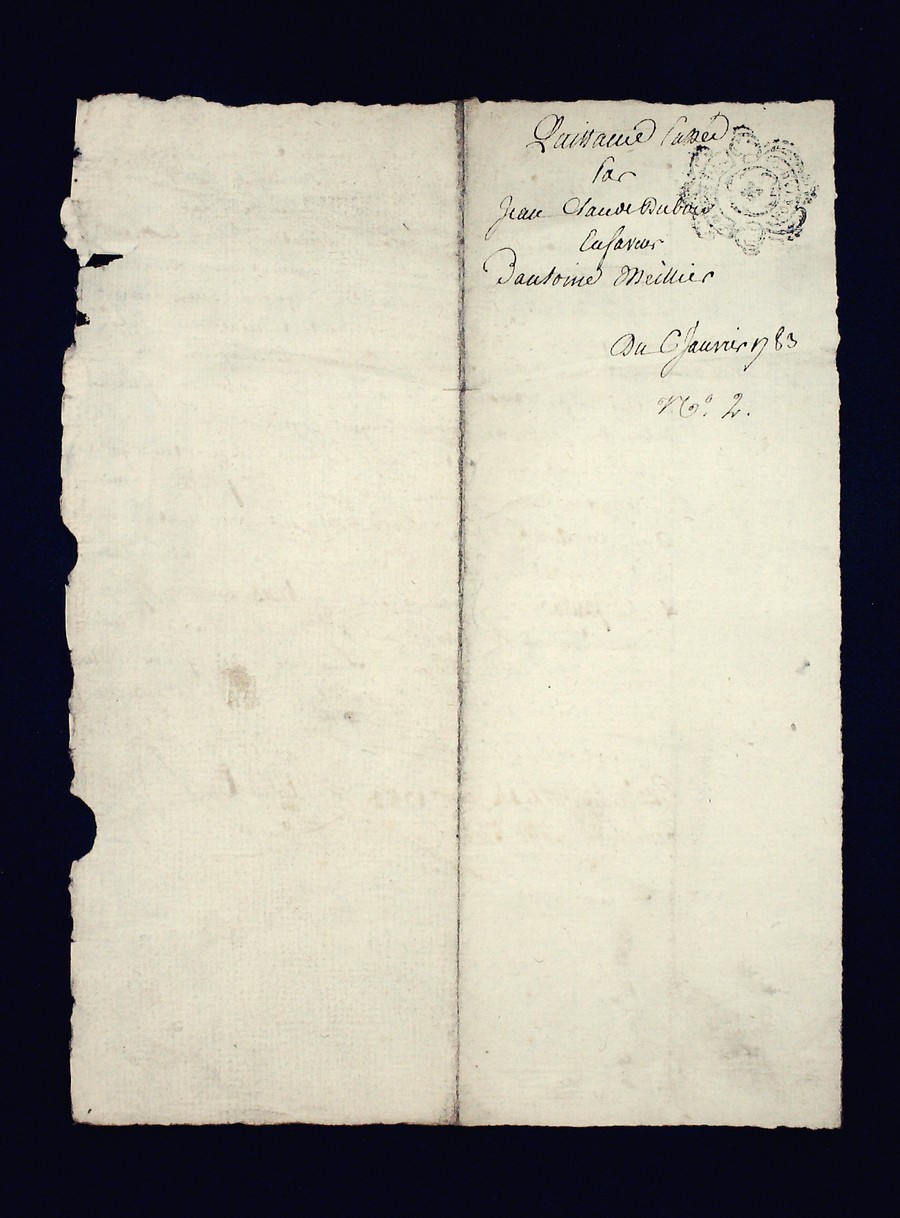 Puissance Passée
Par
Jean Claude Dubois
En faveur
Dantoine Meillier
Du 6 Janvier 1783
No. 2.